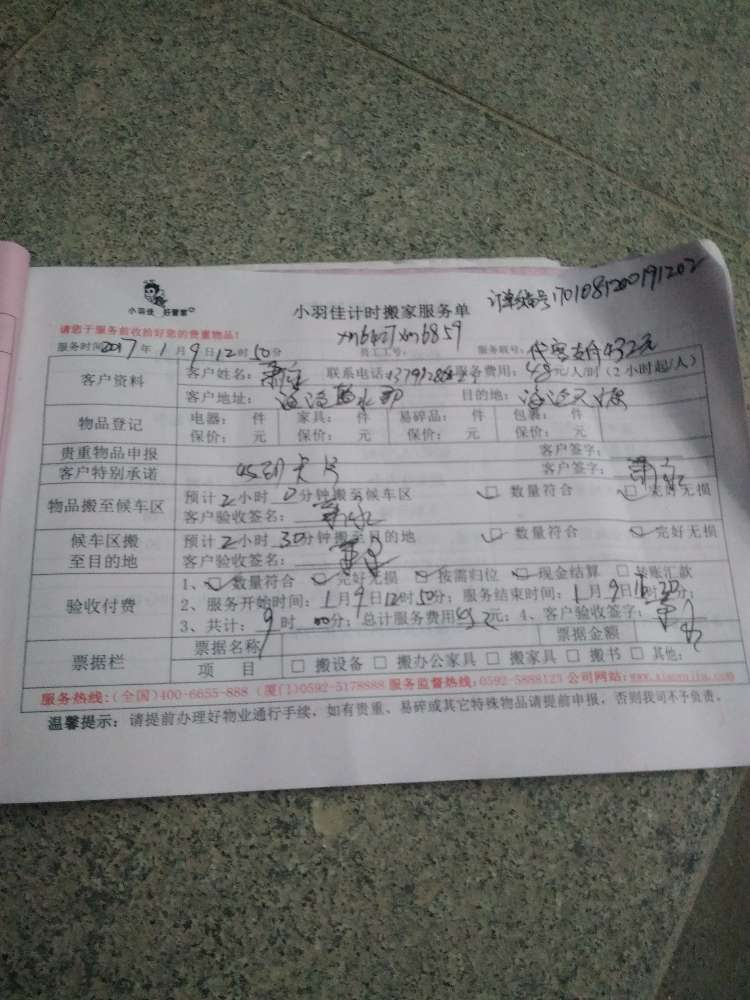 小羽佳 好管家
小羽佳计时搬家服务单
订单编号1701081200191202
请您于服务前收拾好您的贵重物品!
xm6427 xm6859
服务时间2017年1月9日12时50分 员工工号: 服务账号: 代客支付432元
客户资料 客户姓名: 联系电话 服务费用:48元/人/时(2小时起/人)
客户地址: 目的地:
物品登记 电器: 件 家具: 件 易碎品: 件 包裹: 件
保价: 元 保价: 元 保价: 元 保价: 元
贵重物品申报 客户签字:
客户特别承诺 客户签字:
物品搬至候车区 预计2小时0分钟搬至候车区 数量符合 完好无损
客户验收签名:
候车区搬至目的地 预计2小时30分钟搬至目的地 数量符合 完好无损
客户验收签名:
验收付费 1、数量符合 完好无损 按需归位 现金结算 转账汇款
2、服务开始时间:1月9日12时50分;服务结束时间:1月9日
3、共计:9时00分;总计服务费用432元;4、客户验收签字:
票据栏 票据名称 票据金额
项目 □ 搬设备 □ 搬办公家具 □ 搬家具 □ 搬书 □ 其他:
服务热线:(全国)400-6655-888 (厦门)0592-5178888 服务监督热线:0592-5888123 公司网站:
温馨提示:请提前办理好物业通行手续,如有贵重、易碎或其它特殊物品请提前申报,否则我司不予负责。